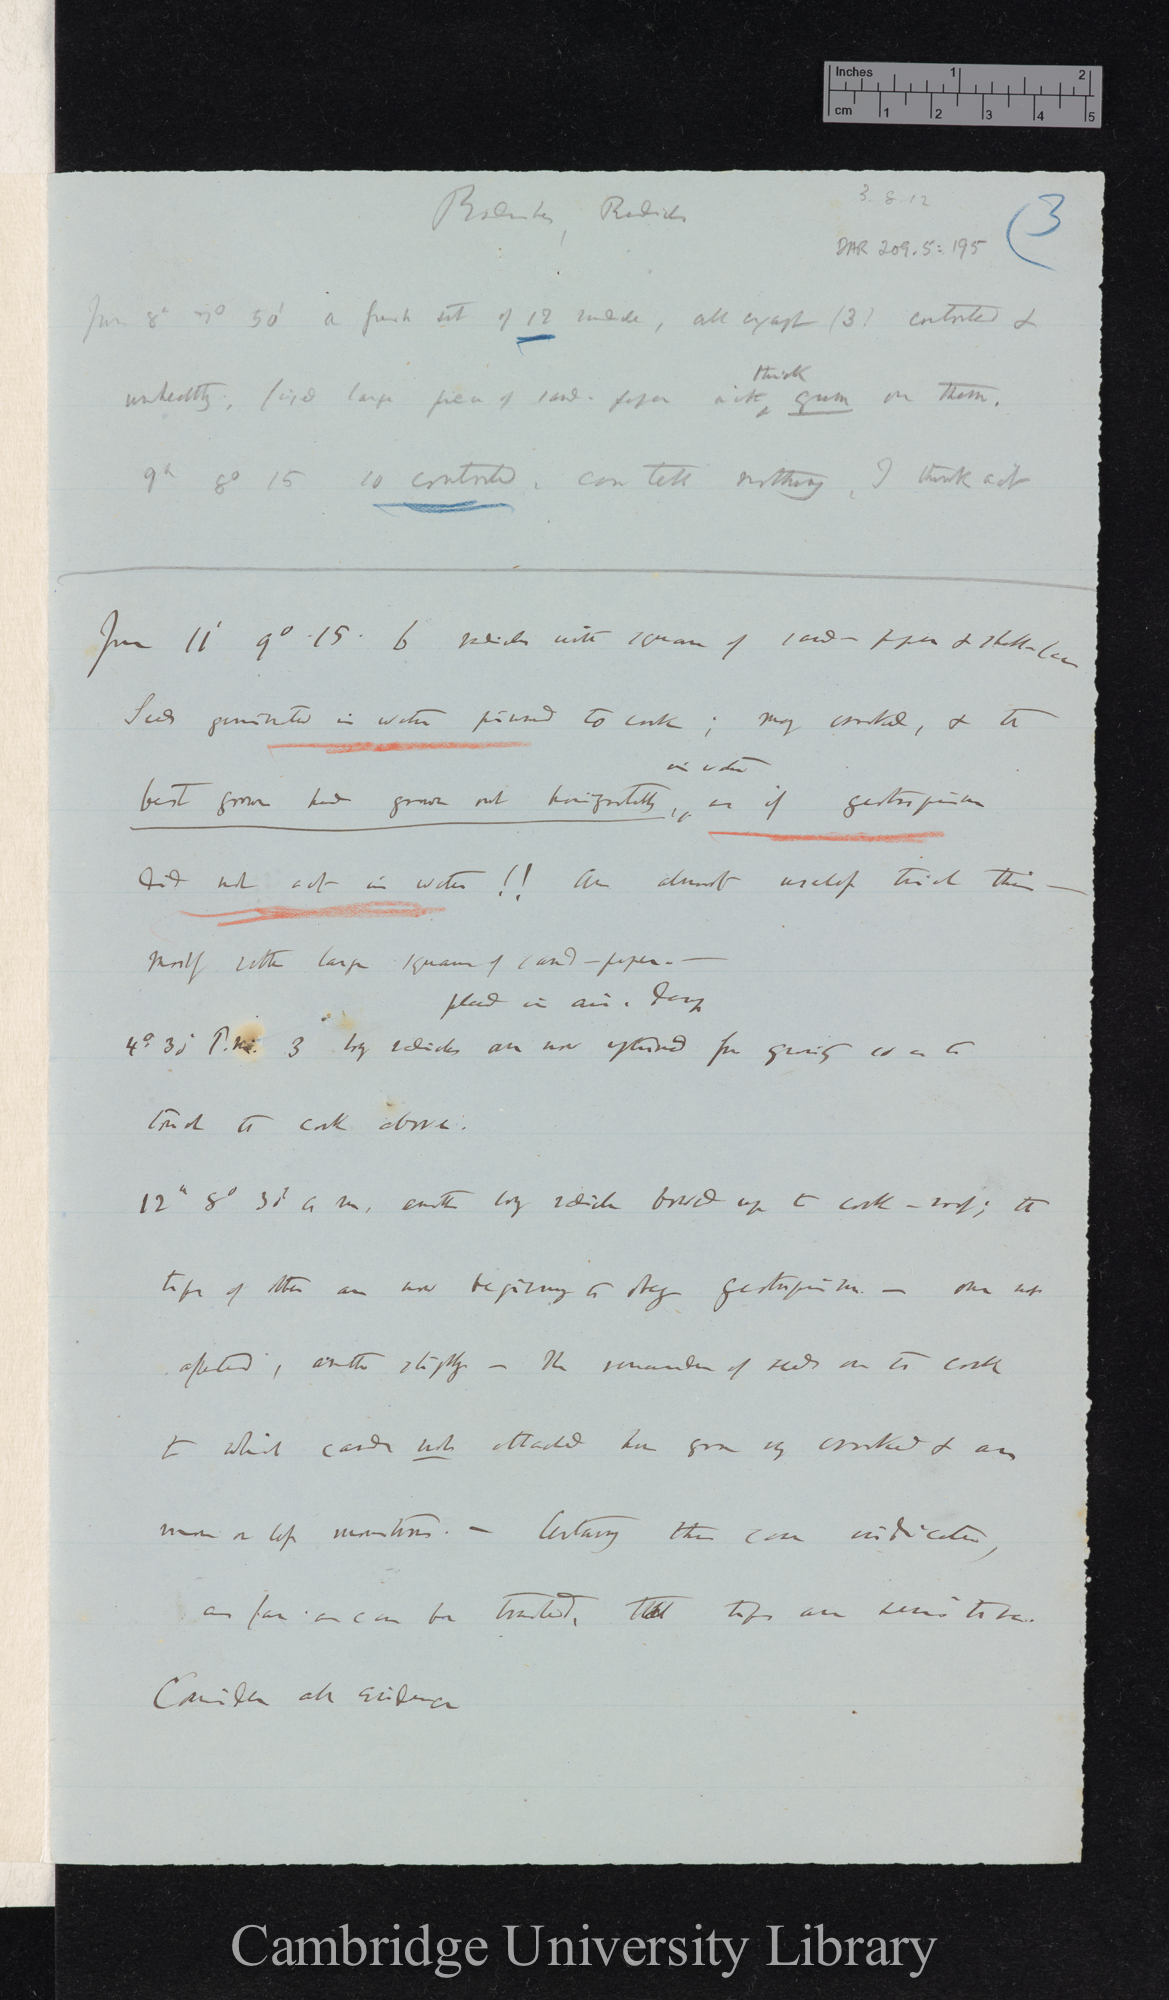 Inches 1 2
cm 1 2 3 4 5
3. 8. 12
Radicles
(3
DAR 209.5: 195
June 8th 7° 30' a fresh set of 12 radicles, all except (3) contorted &
unhealthy, fixed large piece of sand-paper with thick gum on them.
9th 8° 15 10 contorted, can tell nothing, I think act
June 11th 9° 15' 6 radicles with square of sand-paper & shell-lac
Seeds germinated in water pinned to cork; many crooked, & the
best grown had grown out horizontally, in water as if geotropism
did not act in water!! An almost useless trial this —
Mostly with large square of sand-paper. —
placed in air. damp
4° 30' P.m. 3 long radicles are now upturned from gravity so as to
touch the cork above.
12th 8° 30' a m, another long radicle bowed up to cork-roof; the
tips of other are now beginning to obey geotropism. — one not
affected, another slightly — The remainder of seeds on the cork
to which cards not attached have grown very crooked & are
more or less monstrous. — Certainly this case indicates,
as far as can be trusted, that tips are sensitive.
Consider all evidence
Cambridge University Library